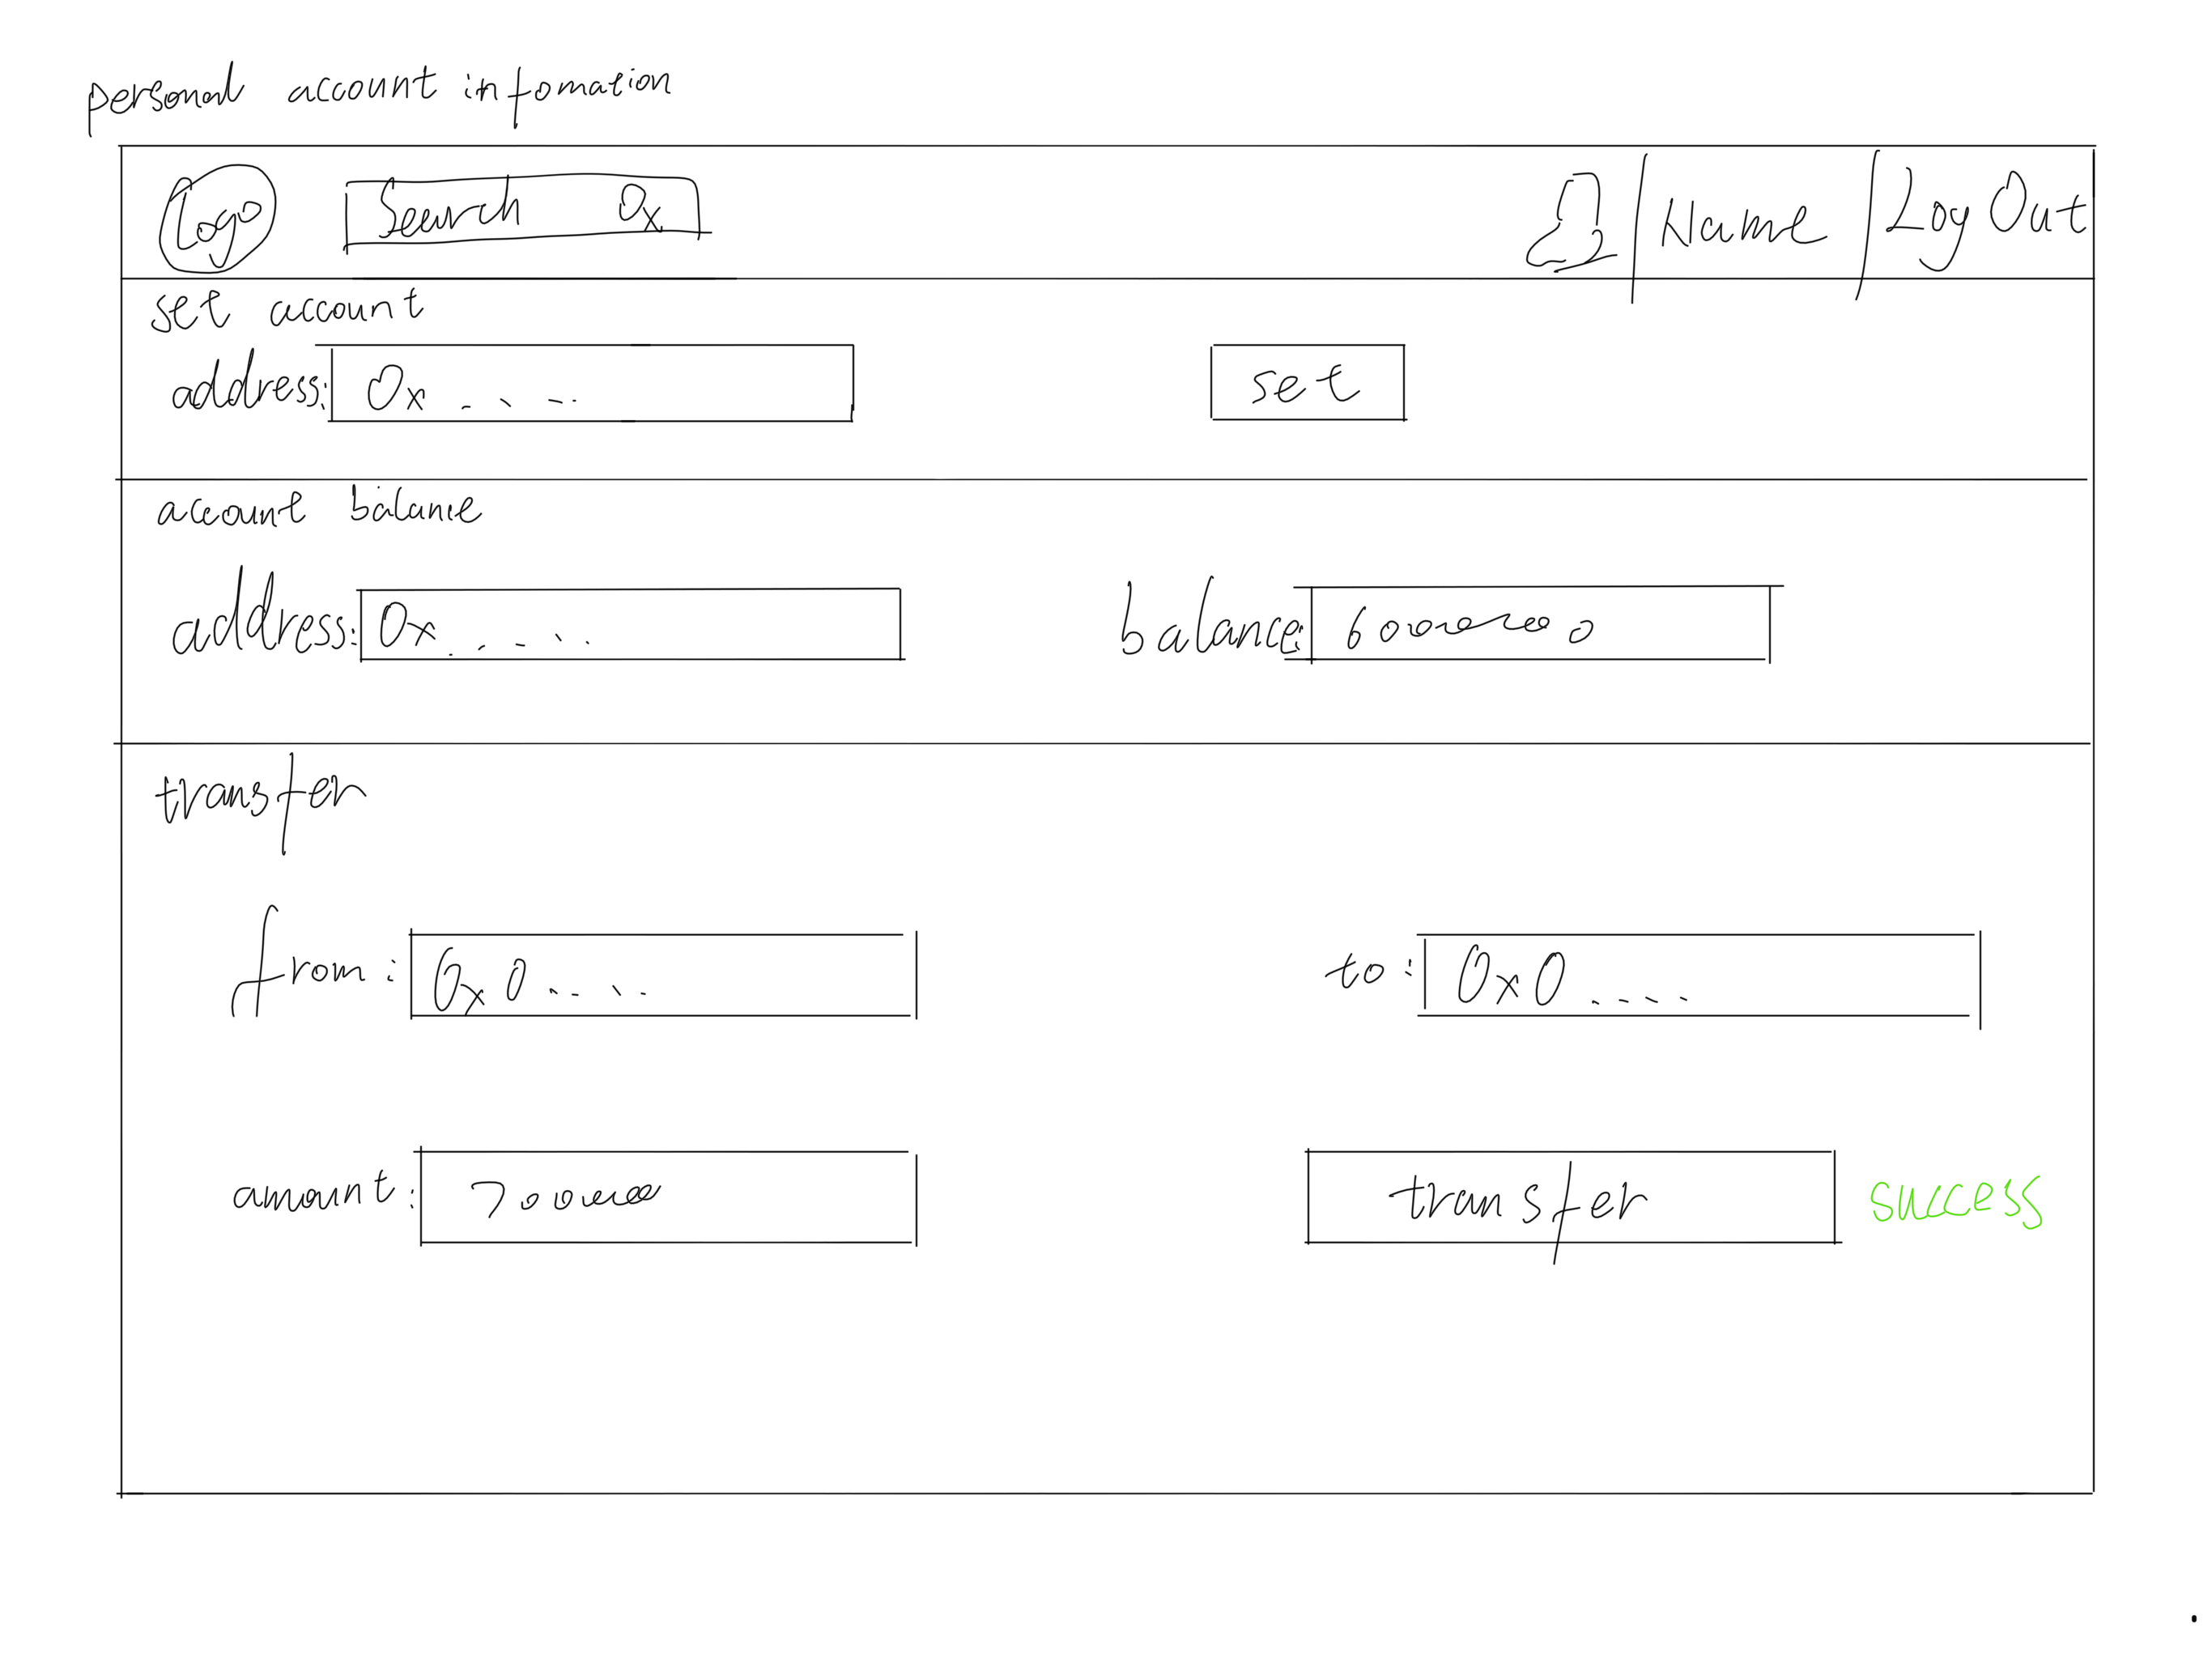 personal account infomation
Logo Search 0x Name Log Out
set account
address: 0x..... set
account balance
address: 0x..... balance:
transfer
from: 0x0.... to: 0x0....
amount: transfer success